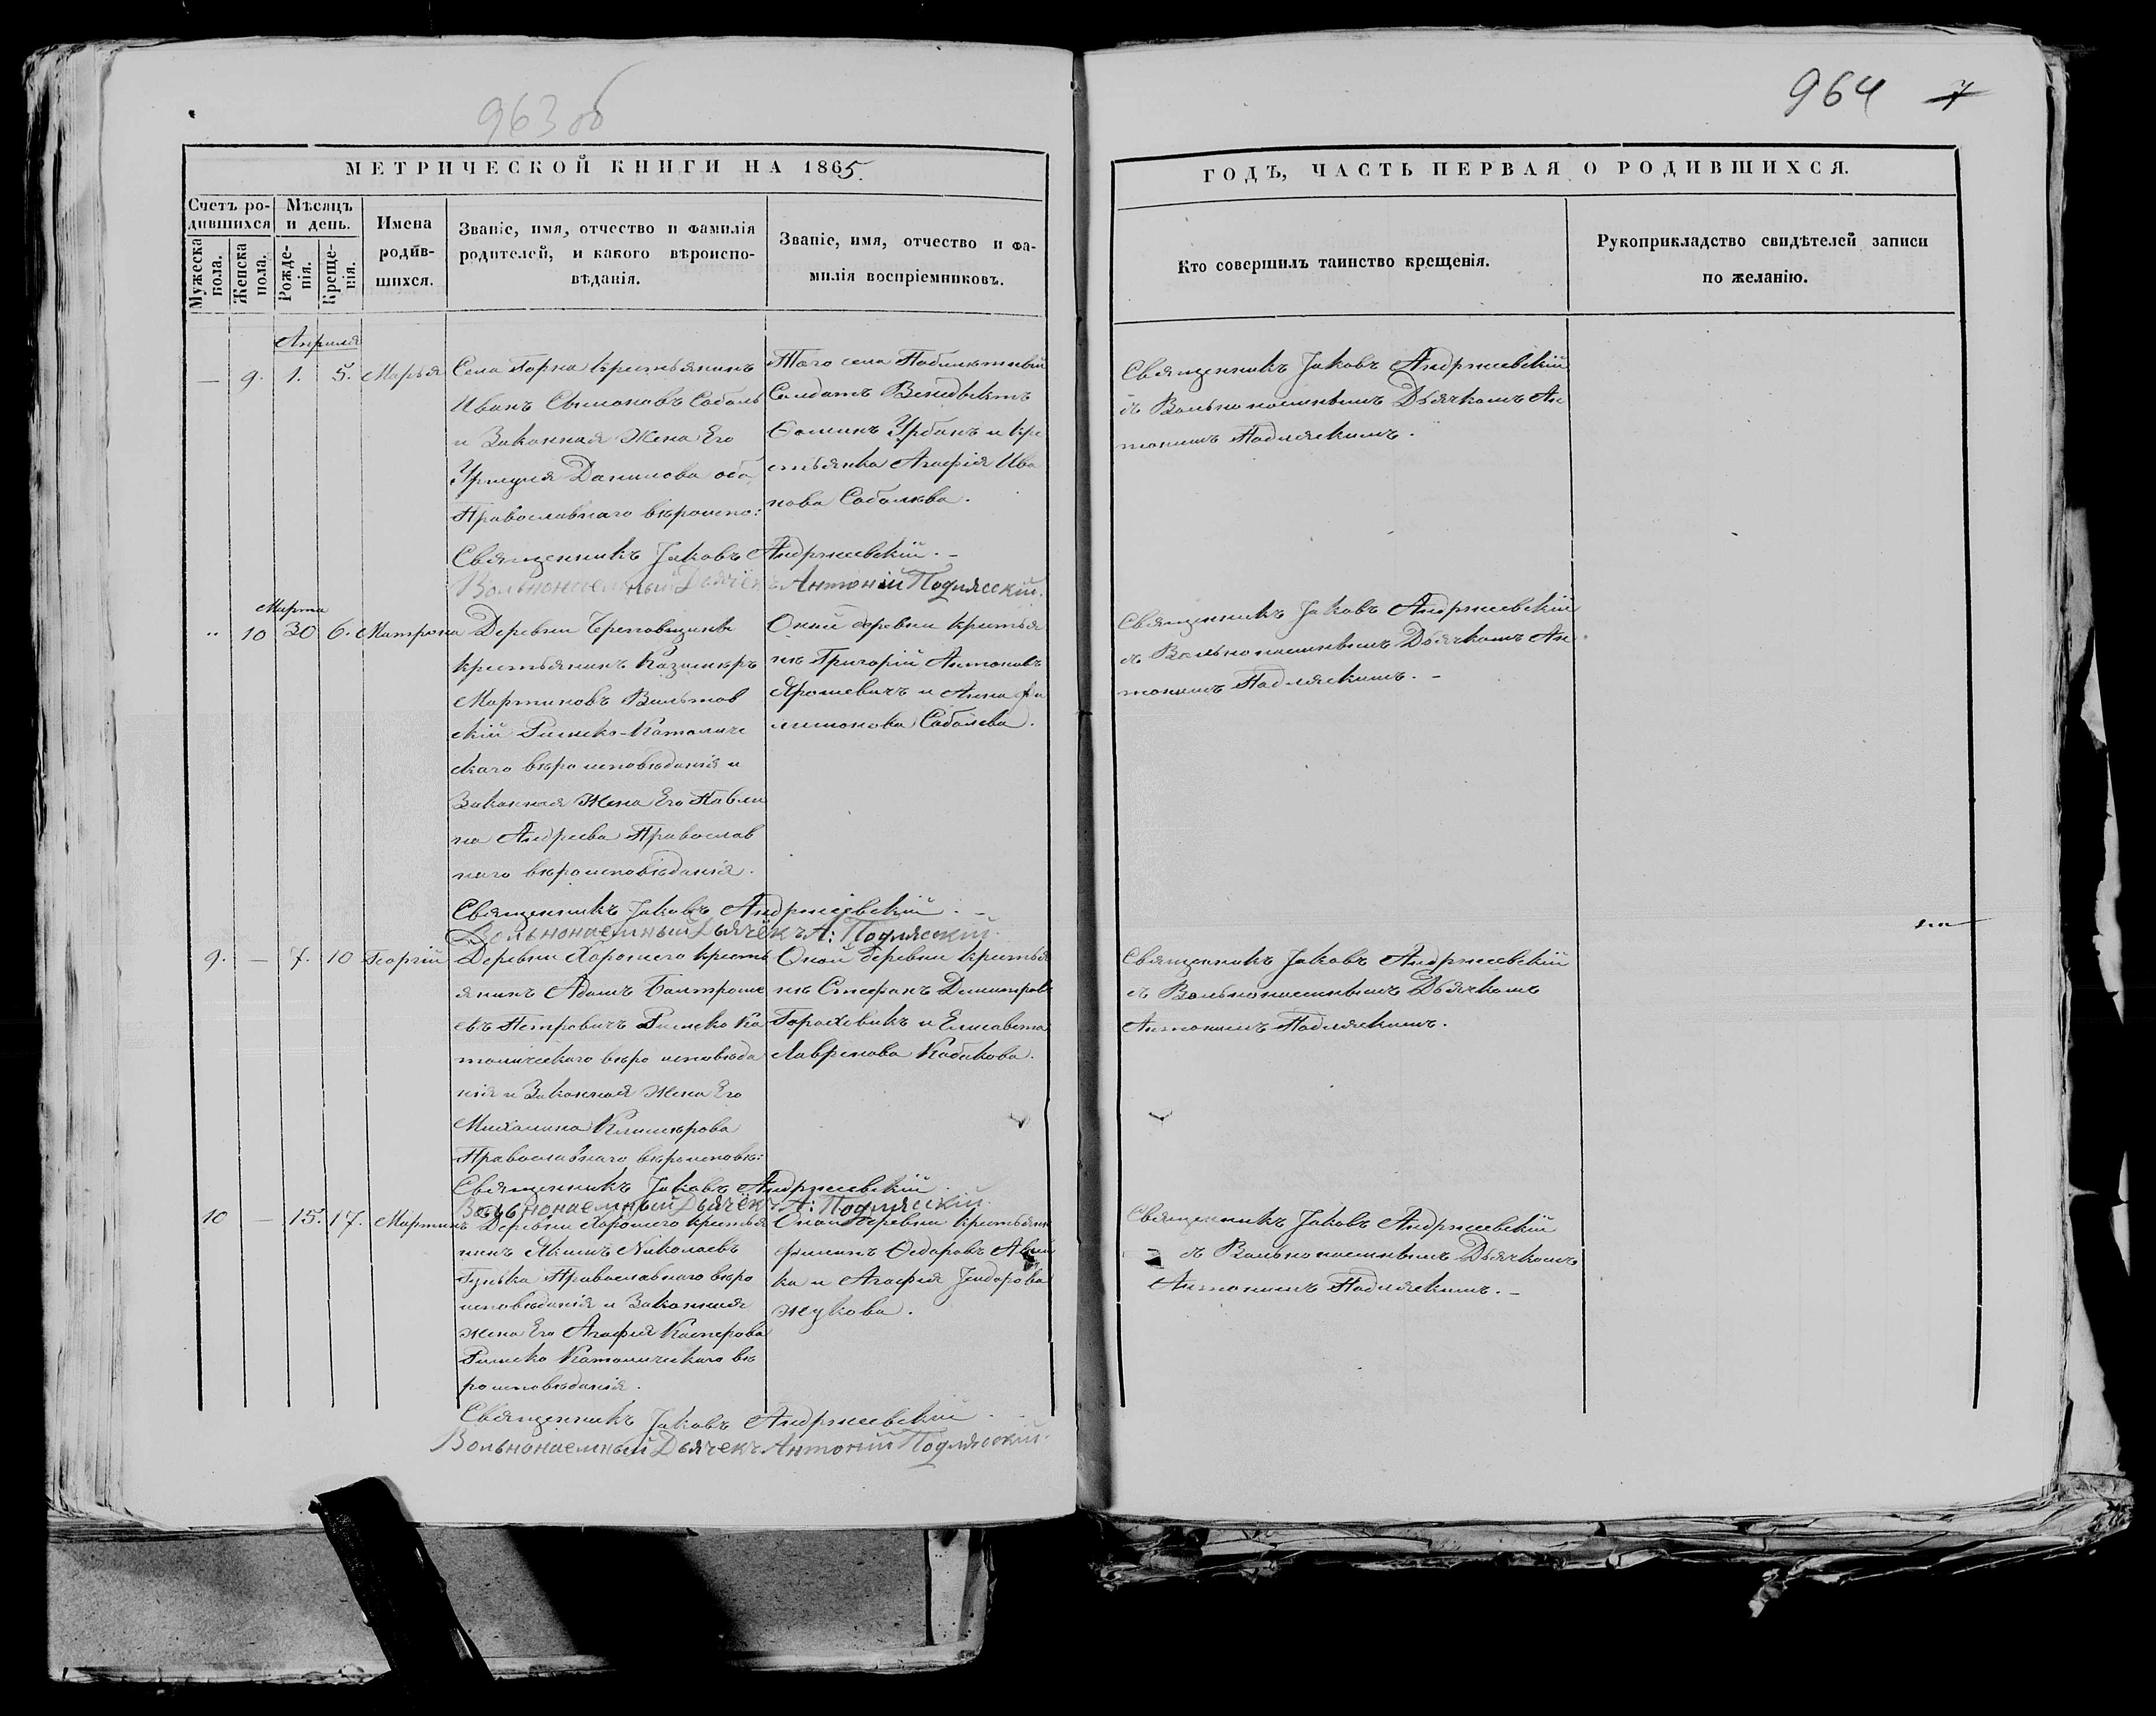 963 об
МЕТРИЧЕСКОЙ КНИГИ НА 1865.
Счетъ родившихся
Мѣсяцъ и день.
Мужеска пола.
Женска пола.
Рожденія.
Крещенія.
Имена родившихся.
Званіе, имя, отчество и фамилія
родителей, и какого вѣроиспо-
вѣданія.
Званіе, имя, отчество и фа-
милія воспріемниковъ.
Апрѣля
— 9. 1. 5. Марья
Села Горна крестьянинъ
Иванъ Сымоновъ Соболь
и Законная Жена Его
Данилова оба
Православнаго вѣроиспо:
Того села
Солдатъ Венедыктъ
Ѳоминъ Урбанъ и кре
стьянка Агафія Ива
нова Соболева.
Священникъ Іаковъ Андржеевскій. –
Вольнонаемный Дьячекъ Антоній Подлясскій.
Марта
" 10 30 6. Матрона
Деревни
крестьянинъ Казимиръ
Мартиновъ
скій Римско-Католиче
скаго вѣроисповѣданія и
Законная Жена Его Павли
на Андреева Православ
наго вѣроисповѣданія.
Оной деревни крестья
не Григорій Антоновъ
Ярошевичъ и Анна Фи
лимонова Соболева.
Священникъ Іаковъ Андржеевскій. –
Вольнонаемный Дьячекъ А: Подлясскій.
9. — 7. 10 Георгій
Деревни Хорошего кресть
янинъ Адамъ
Петровичъ Римско Ка
толическаго вѣро исповѣда
нія и Законная Жена Его
Михалина
Православнаго вѣроисповѣ:
Оной деревни крестья
не Стефанъ Димитровъ
Гороховикъ и Елисавета
Лавренова Кобакова.
Священникъ Іаковъ Андржеевскій
Вольнонаемный Дьячекъ А: Подлясскій.
10 — 15. 17. Мартинъ
Деревни Хорошего крестья
нинъ Якимъ Николаевъ
Гунька Православнаго вѣро
исповѣданія и Законная
жена Его Агафія Касперова
Римско Католическаго вѣ
роисповѣданія.
Оной деревни крестьяне
Ѳедоровъ
ка и Агафія
Жукова.
Священникъ Іаковъ Андржеевскій.
Вольнонаемный Дьячекъ Антоній Подлясскій.
964 7
ГОДЪ, ЧАСТЬ ПЕРВАЯ О РОДИВШИХСЯ.
Кто совершилъ таинство крещенія.
Рукоприкладство свидѣтелей записи
по желанію.
Священникъ Іаковъ Андржеевскій
съ Вольнонаемнымъ Дьячкомъ Ан
тонимъ Подляскимъ.
Священникъ Іаковъ Андржеевскій
съ Вольнонаемнымъ Дьячкомъ Ан
тонимъ Подляскимъ. –
Священникъ Іаковъ Андржеевскій
съ Вольнонаемнымъ Дьячкомъ
Антонимъ Подляскимъ.
Священникъ Іаковъ Андржеевскій
съ Вольнонаемнымъ Дьячкомъ
Антонимъ Подляскимъ. –